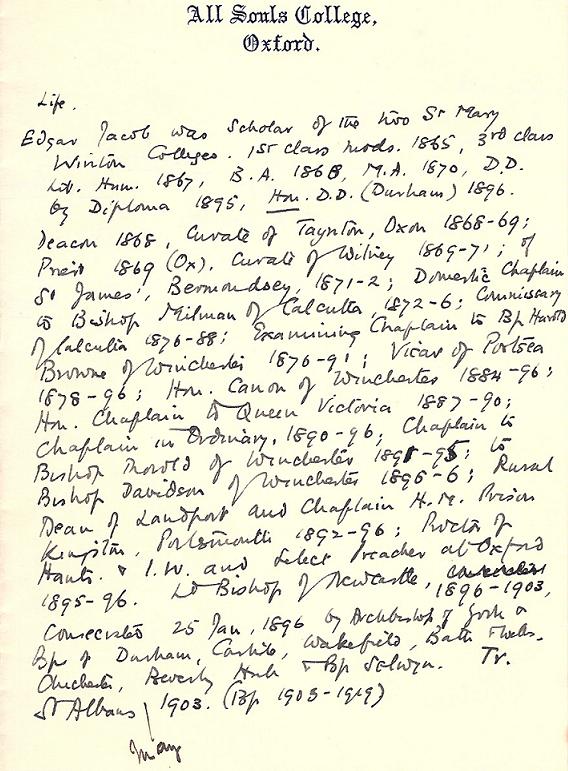 All Souls College,
Oxford.
Life.
Edgar Jacob was Scholar of the two St Mary
Winton Colleges. 1st class Mods. 1865, 3rd class
Lit. Hum. 1867, B.A. 1868, M.A. 1870, D.D.
by Diploma 1895, Hon. D.D. (Durham) 1896.
Deacon 1868, Curate of Taynton, Oxon 1868-69;
Priest 1869 (Ox). Curate of Witney 1869-71; of
St James', Bermondsey, 1871-2; Domestic Chaplain
to Bishop Milman of Calcutta, 1872-6; Commissary
of Calcutta 1876-88; Examining Chaplain to Bp Harold
Browne of Winchester 1876-91; Vicar of Portsea
1878-96; Hon. Canon of Winchester 1884-96;
Hon. Chaplain to Queen Victoria 1887-90;
Chaplain in Ordinary, 1890-96; Chaplain to
Bishop Thorold of Winchester 1891-95; to
Bishop Davidson of Winchester 1895-6; Rural
Dean of Landport and Chaplain H.M. Prison
Kingston, Portsmouth 1892-96; Proctor of
Hants. & I.W. and Select Preacher at Oxford
1895-96. Ld Bishop of Newcastle, 1896-1903,
Consecrated 25 Jan, 1896 by Archbishop of York &
Bps of Durham, Carlisle, Wakefield, Bath & Wells.
Chichester, Beverley Hull & Bp Selwyn. Tr.
St Albans 1903. (Bp 1903-1919)
May